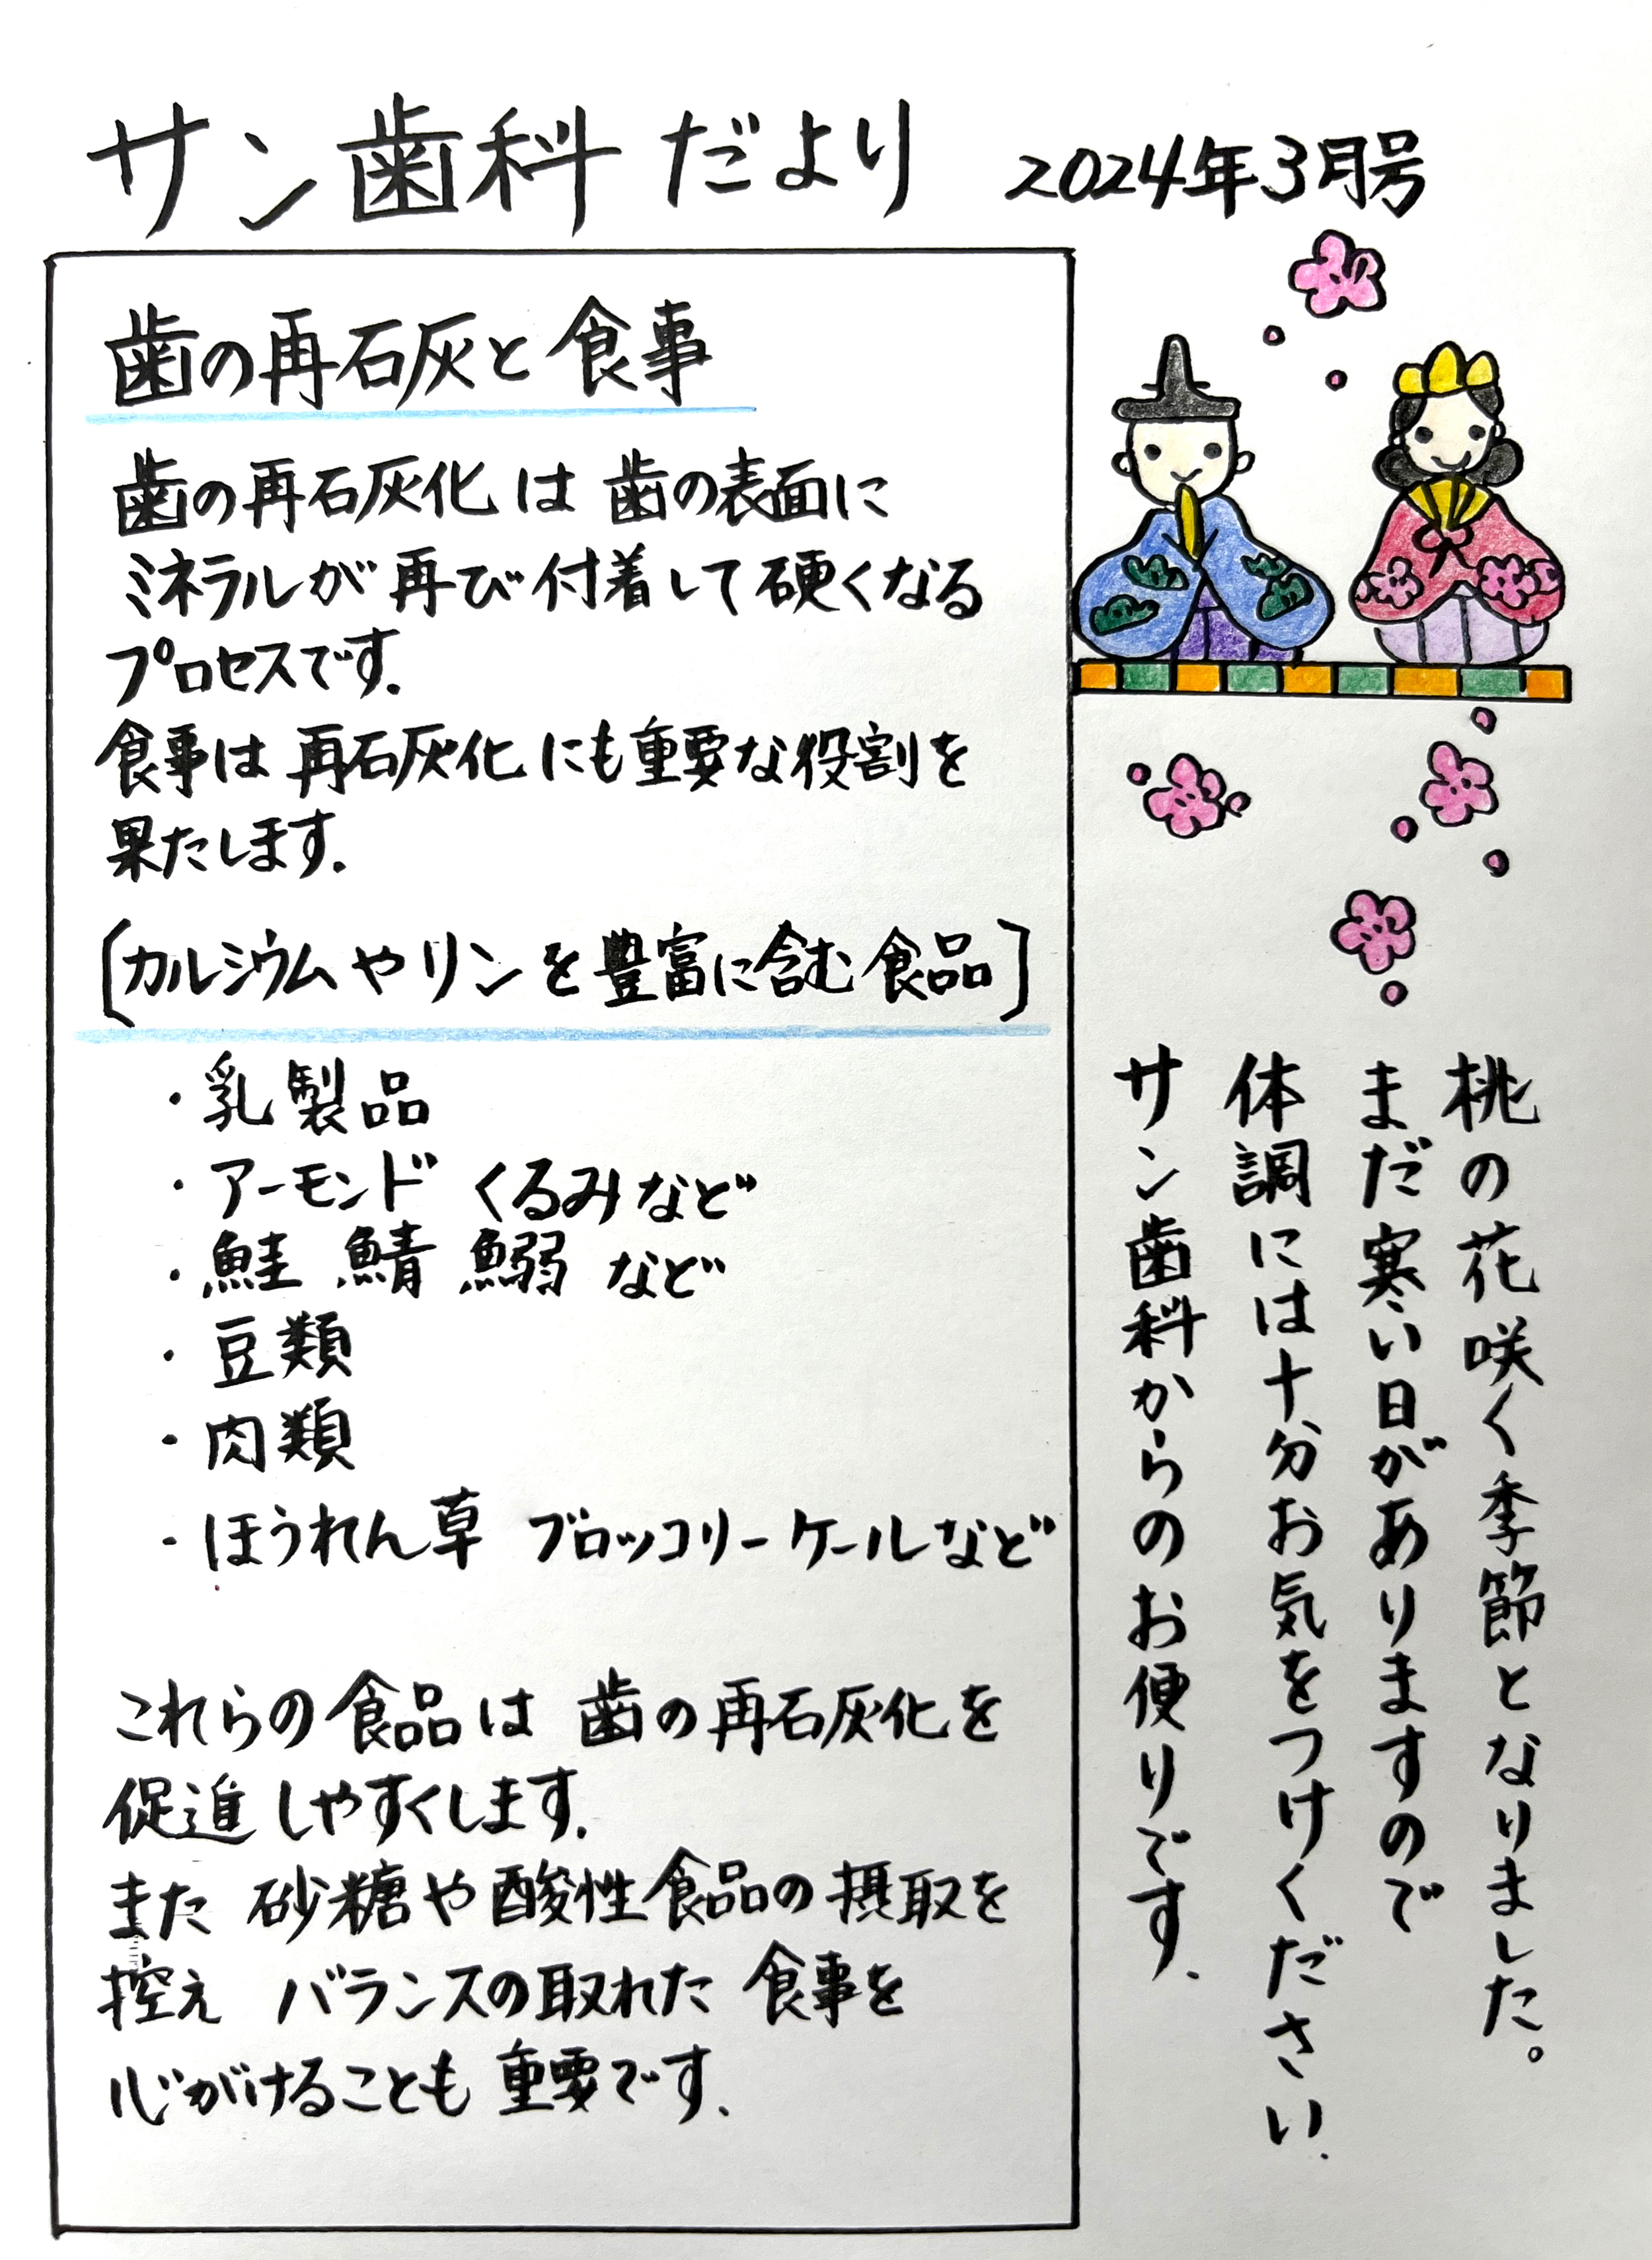 サン歯科だより 2024年3月号
歯の再石灰と食事
歯の再石灰化は歯の表面に
ミネラルが再び付着して硬くなる
プロセスです.
食事は再石灰化にも重要な役割を
果たします.
〔カルシウムやリンを豊富に含む食品〕
・乳製品
・アーモンド くるみなど
・鮭 鯖 鰯 など
・豆類
・肉類
・ほうれん草 ブロッコリー ケールなど
これらの食品は 歯の再石灰化を
促進しやすくします.
また 砂糖や酸性食品の摂取を
控え バランスの取れた 食事を
心がけることも 重要です.
桃の花咲く季節となりました。
まだ寒い日がありますので
体調には十分お気をつけください.
サン歯科からのお便りです.